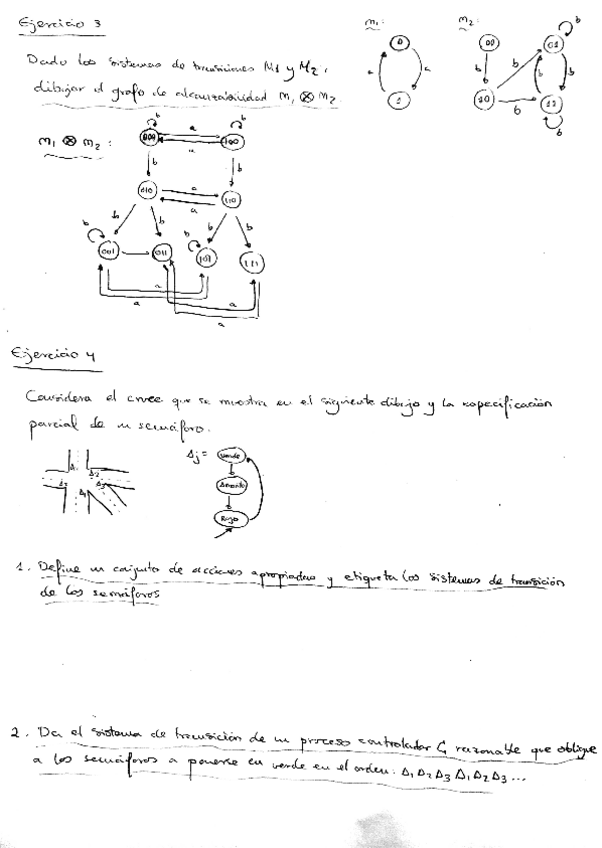 Ejercicio 3
m₁:
m₂:
Dado los sistemas de transiciones M1 y M2,
dibujar el grafo de alcanzabilidad m₁ ⊗ m₂.
0
a
a
1
00
01
b
b
b
b
b
10
b
11
b
m₁ ⊗ m₂ :
b
b
000
a
a
100
b
b
010
a
a
110
b
b
b
b
b
b
001
011
101
111
a
a
a
a
Ejercicio 4
Considera el cruce que se muestra en el siguiente dibujo y la especificación
parcial de un semáforo.
Δj =
Verde
Rojo
1. Define un conjunto de acciones apropiadas y etiqueta los sistemas de transición
de los semáforos
2. Da el sistema de transición de un proceso controlador C, razonable que oblique
a los semáforos a ponerse en verde en el orden: Δ₁ Δ₂ Δ₃ Δ₁ Δ₂ Δ₃ ...